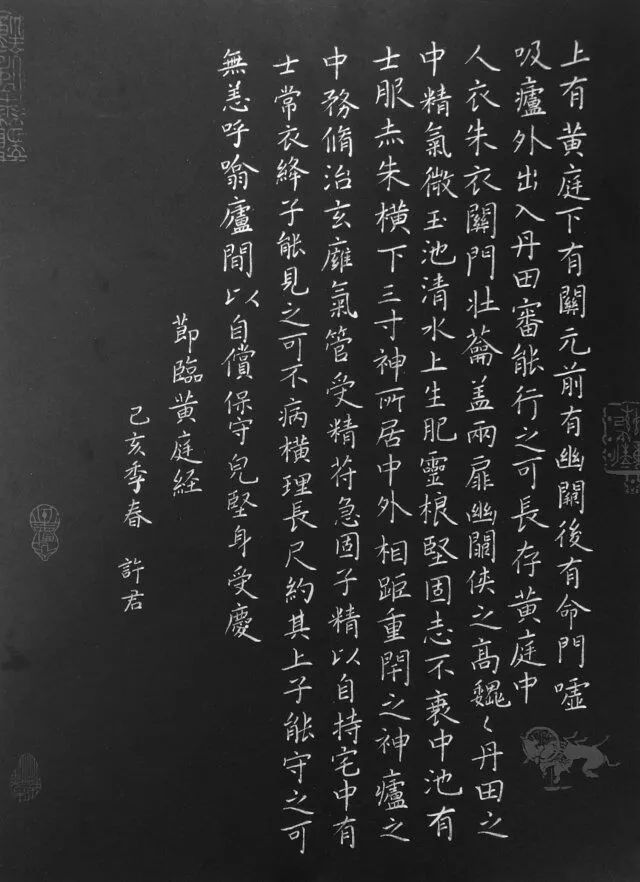 上有黄庭下有關元前有幽闕後有命門噓
吸廬外出入丹田審能行之可長存黄庭中
人衣朱衣關門壮蘥盖兩扉幽闕俠之高巍々丹田之
中精氣微玉池清水上生肥靈根堅固志不衰中池有
士服赤朱横下三寸神所居中外相距重閇之神廬之
中務脩治玄廱氣管受精苻急固子精以自持宅中有
士常衣絳子能見之可不病横理長尺約其上子能守之可
無恙呼噏廬間以自償保守皃堅身受慶
莭臨黄庭経
己亥季春 許君